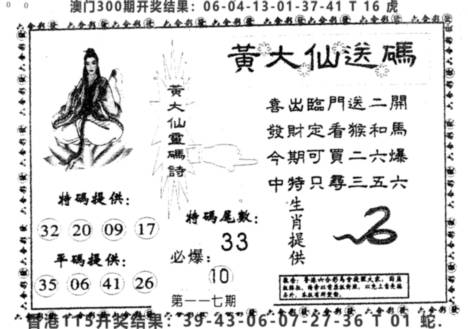 澳门300期开奖结果：06-04-13-01-37-41 T 16 虎
黃大仙送碼
黃大仙靈碼詩
喜出臨門送二開
發財定看猴和馬
今期可買二六爆
中特只尋三五六
生肖提供
特碼提供：
32 20 09 17
平碼提供：
35 06 41 26
特碼尾數：
33
必爆：
10
第一一七期
香港115开奖结果：39-43-06-07-27-36 T 01 蛇.